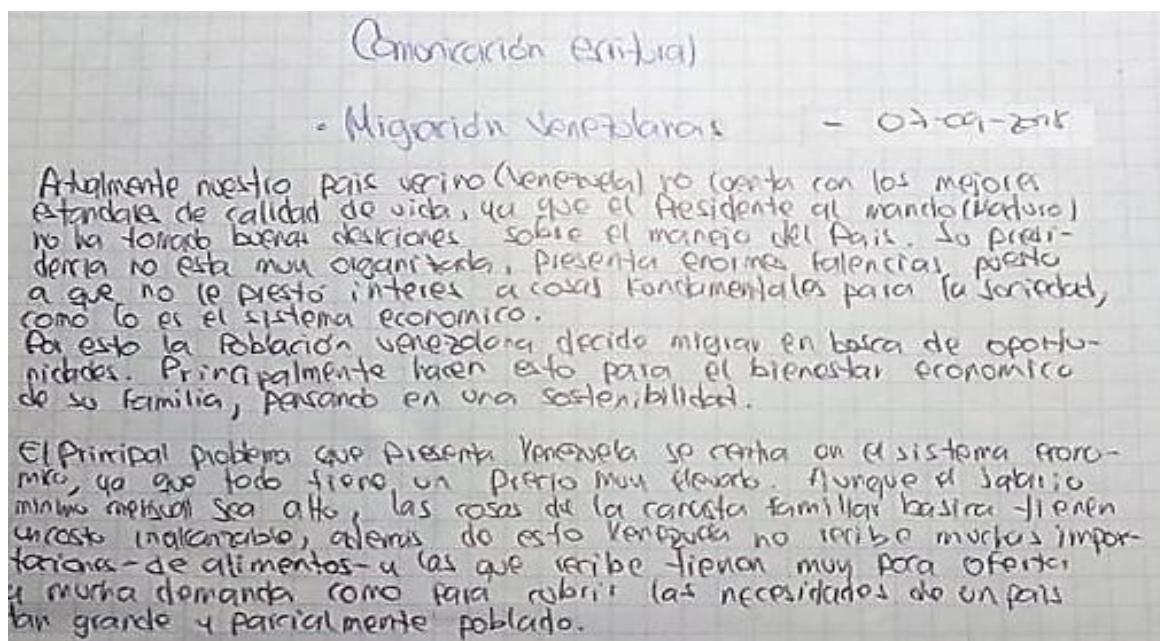 Comunicación escritural
• Migración Venezolanas - 07-09-2018
Atualmente nuestro pais vecino (Venezuela) no cuenta con los mejores
estandares de calidad de vida, ya que el Presidente al mando (Maduro)
no ha tomado buenas desiciones sobre el manejo del Pais. Su presi-
dencia no esta muy organizada, presenta enormes falencias, puesto
a que no le prestó interes a cosas fundamentales para la sociedad,
como lo es el sistema economico.
Por esto la Población venezolana decide migrar en busca de oportu-
nidades. Principalmente hacen esto para el bienestar economico
de su familia, pensando en una sostenibilidad.
El Principal problema que presenta Venezuela se centra en el sistema econo-
mico, ya que todo tiene un precio muy elevado. Aunque el salario
minimo mensual sea alto, las cosas de la canasta familiar basica tienen
un costo inalcanzable, ademas de esto Venezuela no recibe muchas impor-
taciones - de alimentos - y las que recibe tienen muy poca oferta
y mucha demanda como para cubrir las necesidades de un pais
tan grande y parcialmente poblado.